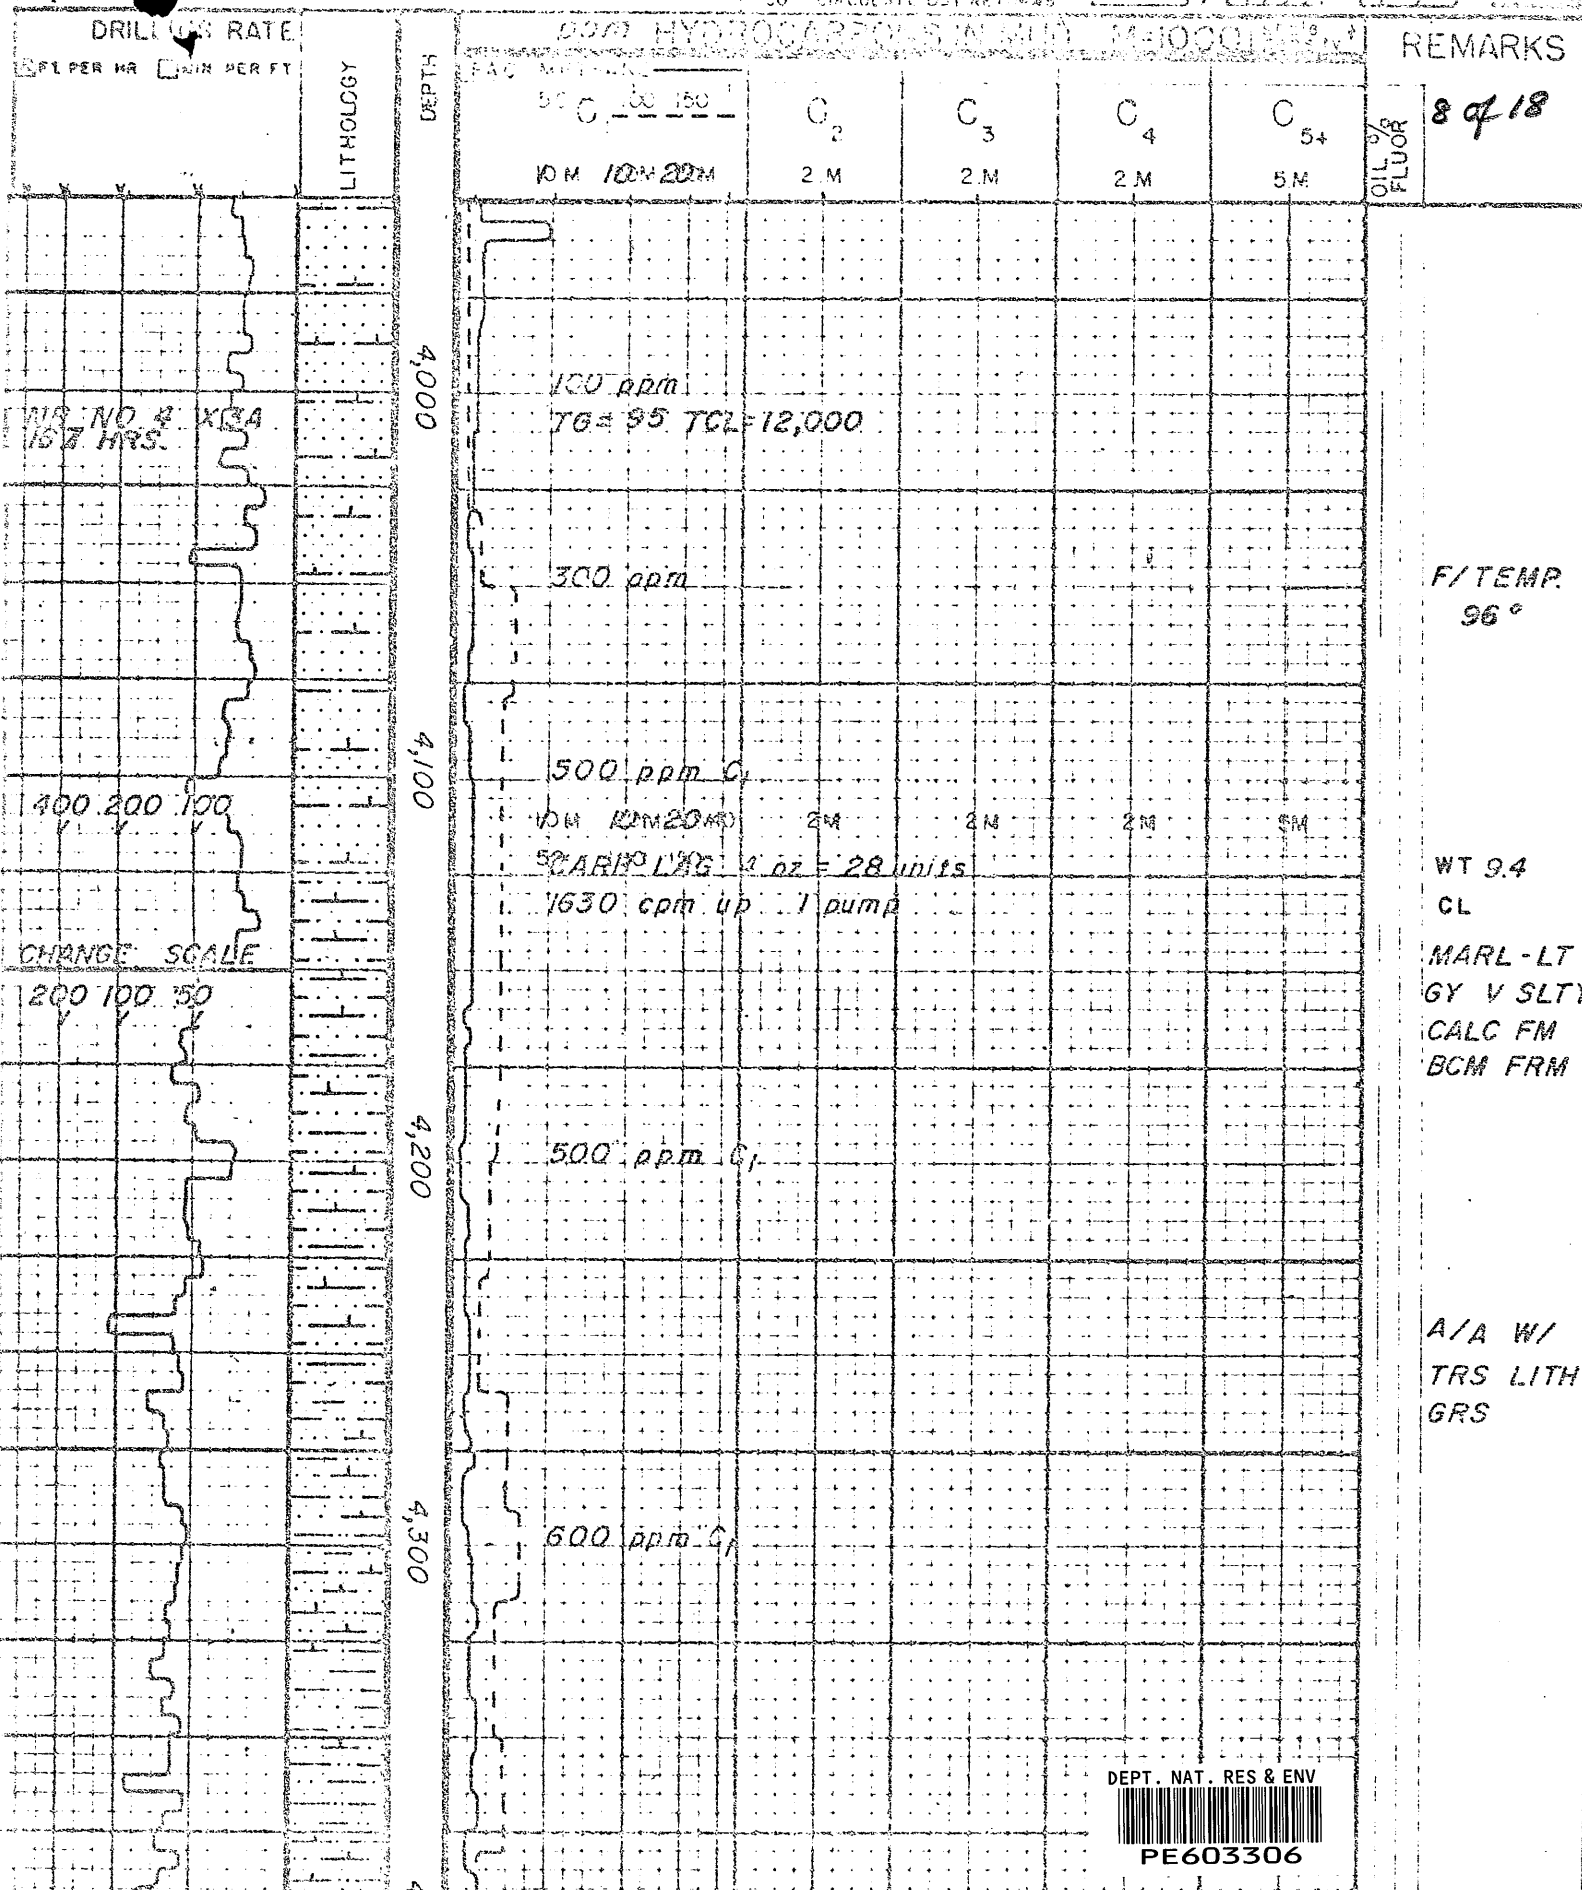 DRILLING RATE
FT PER HR MIN PER FT
LITHOLOGY
DEPTH
ppm HYDROCARBONS IN MUD
50 C 100 150
10 M 100M 200M
C2
2 M
C3
2 M
C4
2 M
C5+
5 M
OIL %
FLUOR
REMARKS
8 of 18
4,000
100 ppm
TG = 95 TCL = 12,000
NB NO 4
HRS.
300 ppm
F/TEMP.
96°
4,100
500 ppm C1
400 200 100
10M 2M 2M 2M 5M
4 oz = 28 units
1630 cpm up 1 pump
WT 9.4
CL
CHANGE SCALE
200 100 50
MARL - LT
GY V SLTY
CALC FM
BCM FRM
4,200
500 ppm C1
A/A W/
TRS LITH
GRS
4,300
600 ppm C1
DEPT. NAT. RES & ENV
PE603306